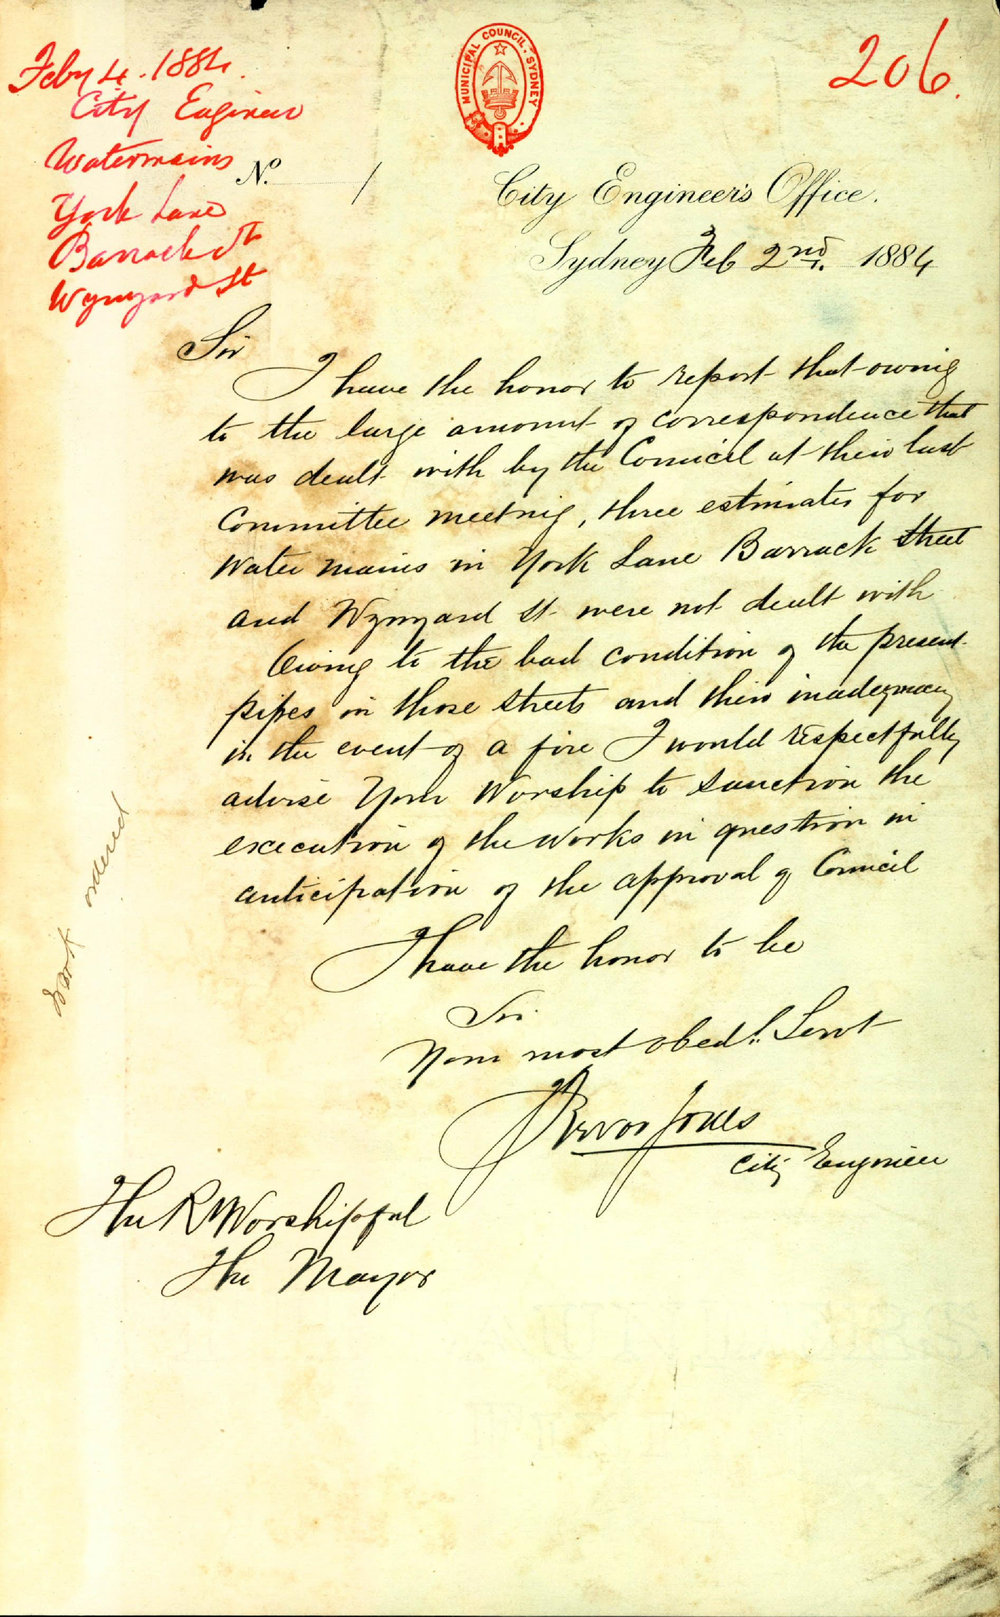 Feby 4. 1884.
City Engineer
Watermains
York Lane
Barrack St
Wynyard St
MUNICIPAL COUNCIL. SYDNEY
206.
No. /
City Engineer's Office.
Sydney Feb 2nd. 1884
Sir
I have the honor to report that owing
to the large amount of correspondence that
was dealt with by the Council at their last
Committee meeting, three estimates for
Water mains in York Lane Barrack Street
and Wynyard St were not dealt with
Owing to the bad condition of the present
pipes in those streets and their inadequacy
in the event of a fire I would respectfully
advise Your Worship to sanction the
execution of the works in question in
anticipation of the approval of Council
I have the honor to be
Sir
Your most obedt. Servt
Trevor Jones
City Engineer
The Rt Worshipful
The Mayor
Work ordered